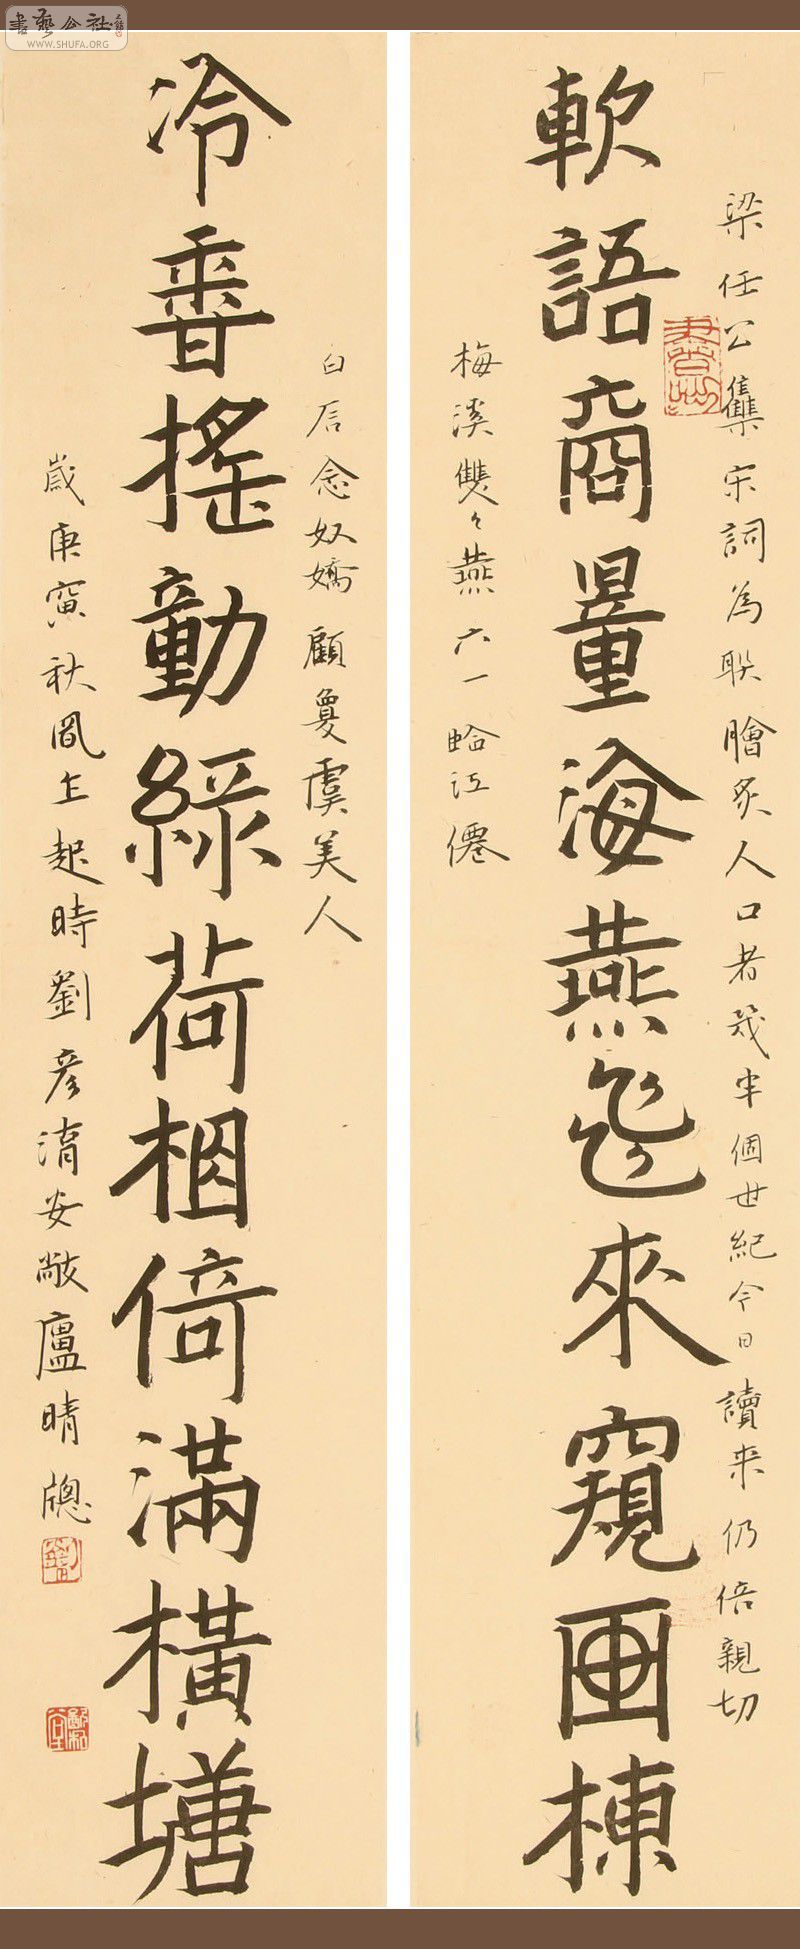 書藝公社
WWW.SHUFA.ORG
梁任公雧宋詞為聯膾炙人口者幾半個世紀今日讀来仍倍親切
軟語商量海燕飛來窺画棟
梅溪雙々燕六一臨江僊
白石念奴嬌顧敻虞美人
冷香搖動綠荷相倚滿橫塘
歲庚寅秋風乍起時劉彦安敞廬晴牕